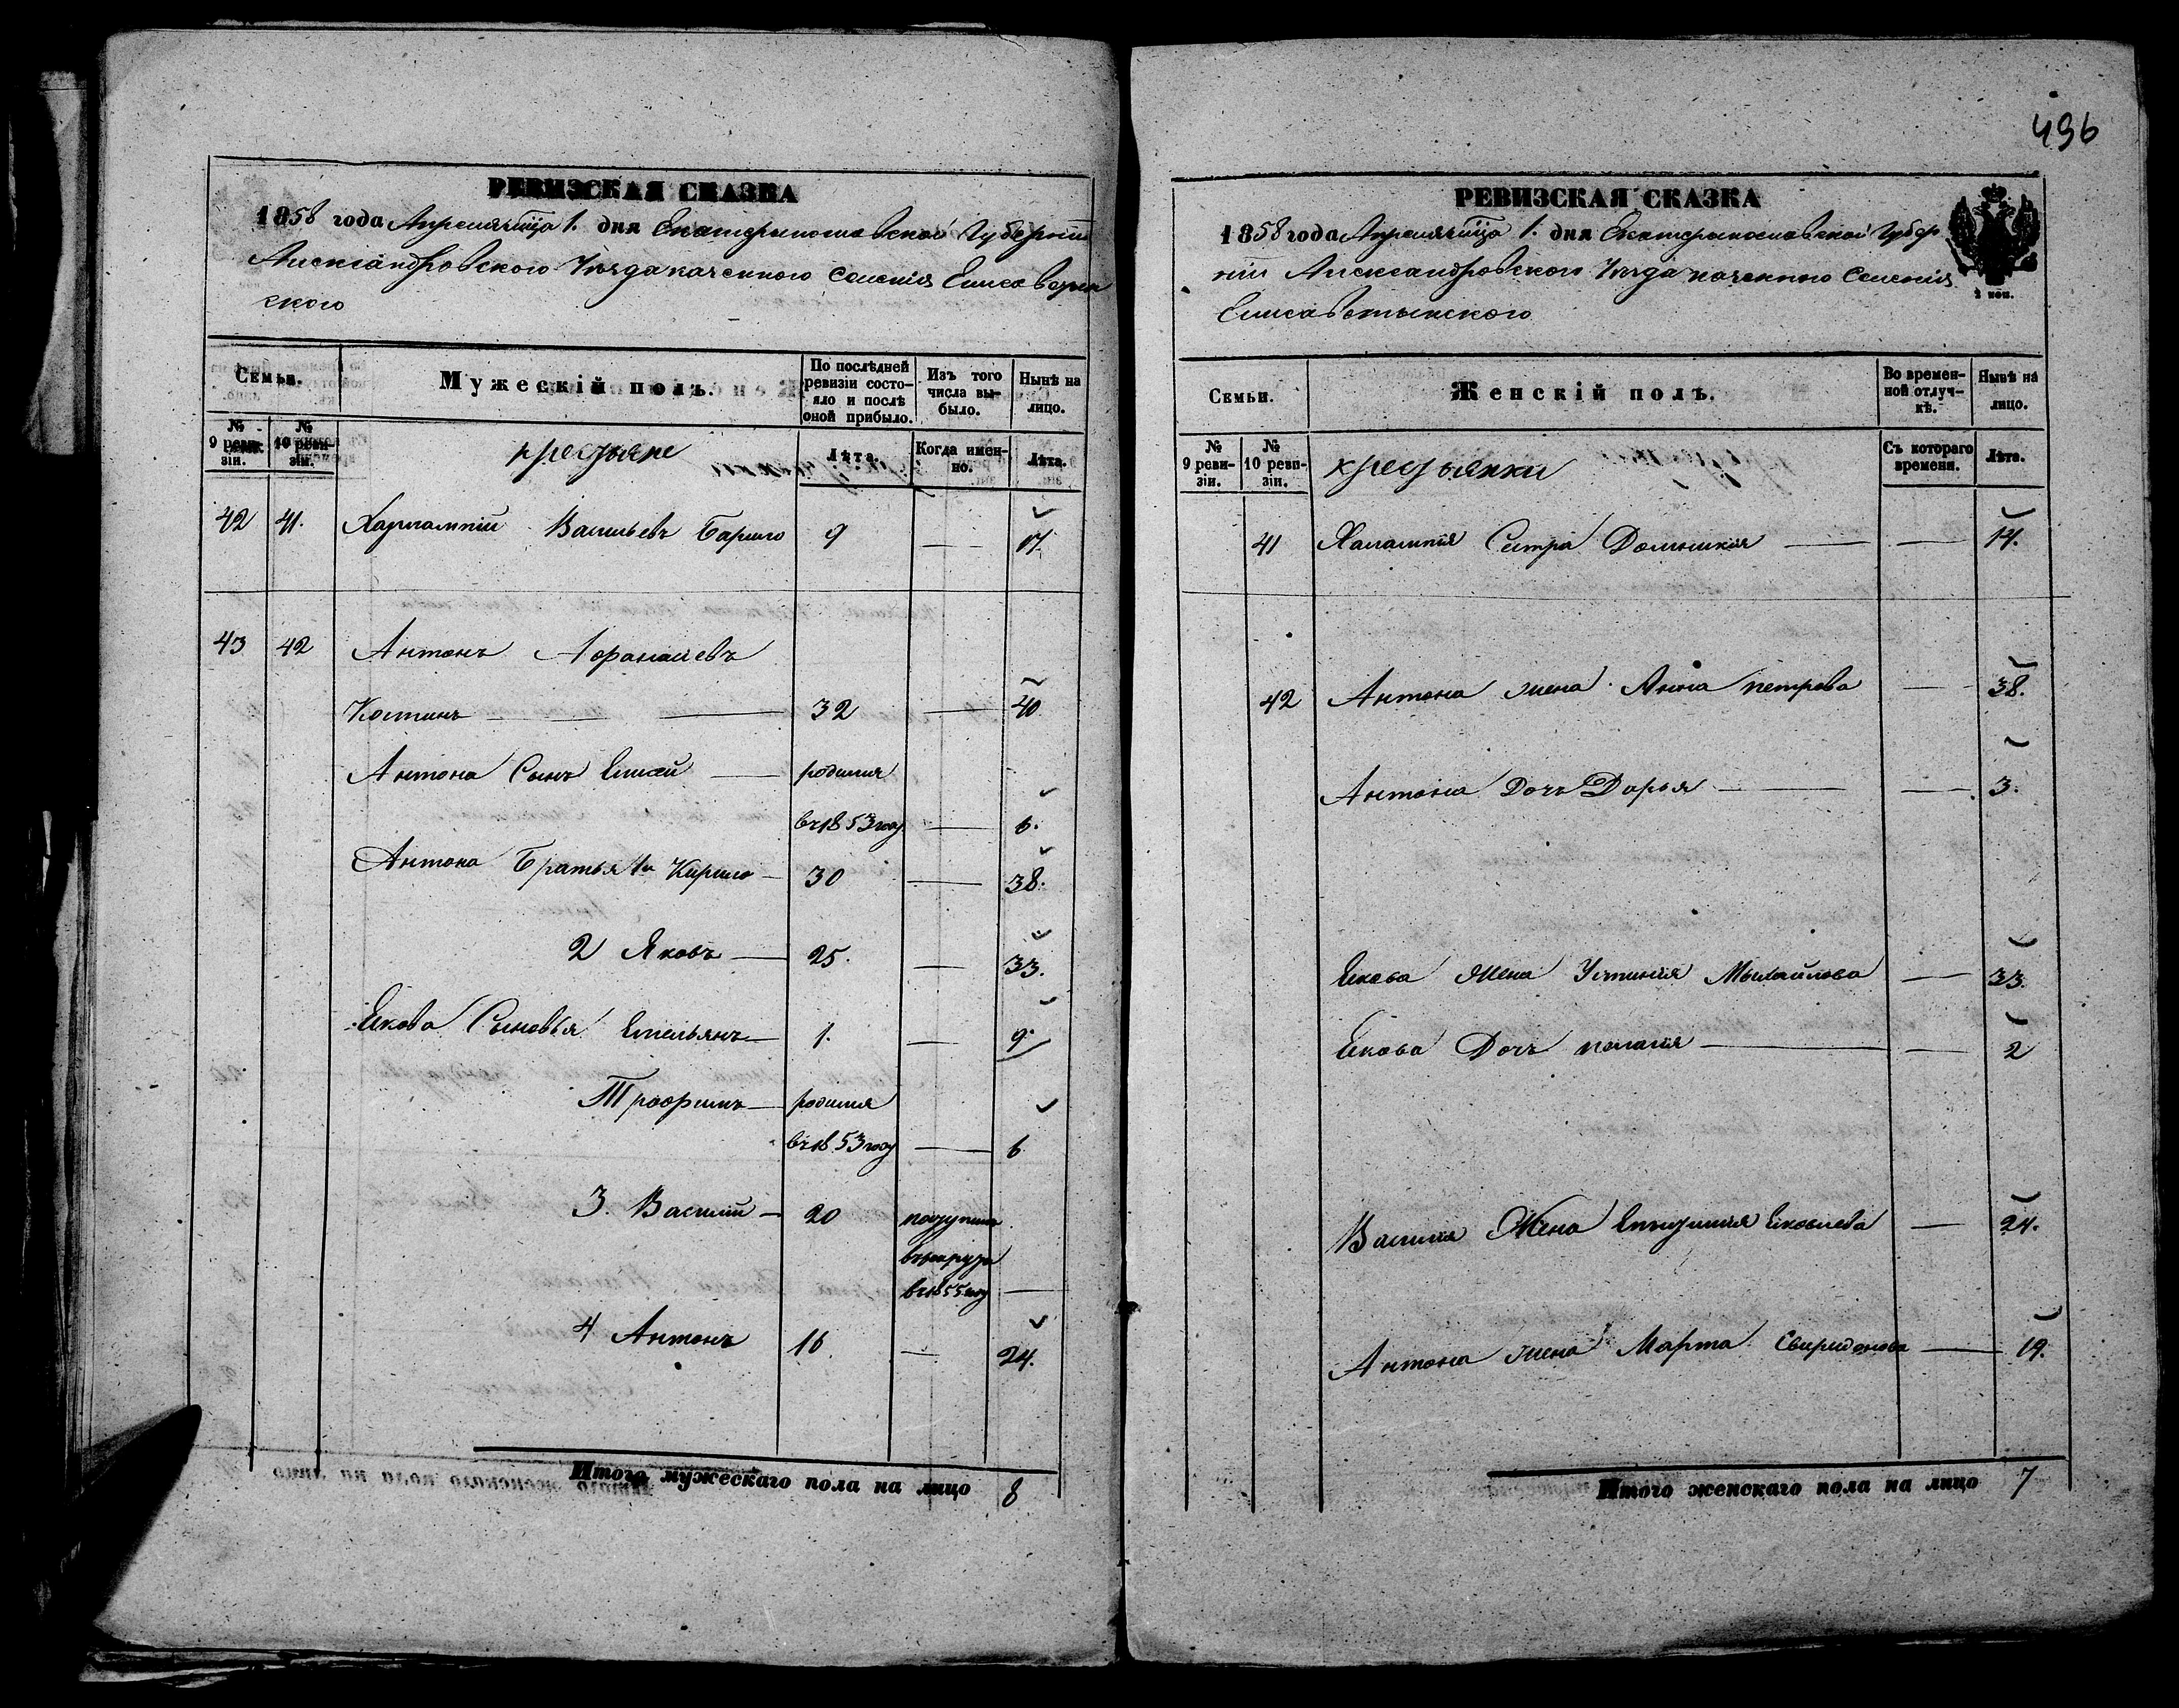 РЕВИЗСКАЯ СКАЗКА
1858 года Апреля мца 1. дня Екатеринославской Губернии
Александровского Уезда казенного Селения Елисаветин
ского
Семьи.
Мужескій полъ.
По послѣдней ревизіи состо-яло и послѣ оной прибыло.
Изъ того числа вы-было.
Нынѣ на лицо.
№ 9 реви-зіи.
№ 10 реви-зіи.
крестьяне
Лѣта.
Когда имен-но.
Лѣта.
42 41. Харлампий Васильевъ Барило 9 — 17.
43 42 Антонъ Афанасиевъ
Костинъ — — 32 — 40
Антона Сынъ Елисей — родился
въ 1853 году — 6.
Антона Братья 1й Кирило — 30 — 38.
2 Яковъ — 25. — 33.
Екова Сыновья Емельянъ — 1. — 9.
Трофимъ — родился
въ 1853 году — 6
3. Василий — 20 поступил
в рекруты
въ 1855 году —
4 Антонъ 16 — 24.
Итого мужескаго пола на лицо 8
496
РЕВИЗСКАЯ СКАЗКА
1858 года Апреля мца 1. дня Екатеринославской Губер
нии Александровского Уезда казенного Селения
Елисаветынского
2 коп.
Семьи.
Женскій полъ.
Во времен-ной отлуч-кѣ.
Нынѣ на лицо.
№ 9 реви-зіи.
№ 10 реви-зіи.
крестьянки
Съ котораго времени.
Лѣта.
41 Халампия Систра Домникия — — 14.
42 Антона жена Анна петрова — 38.
Антона Дочъ Дарья — — 3.
Екова Жена Устиния Мыхайлова — 33.
Екова Дочъ пелагия — — 2
Василия Жена Яковлева — 24.
Антона жена Марта Свиридонова — 19.
Итого женскаго пола на лицо 7